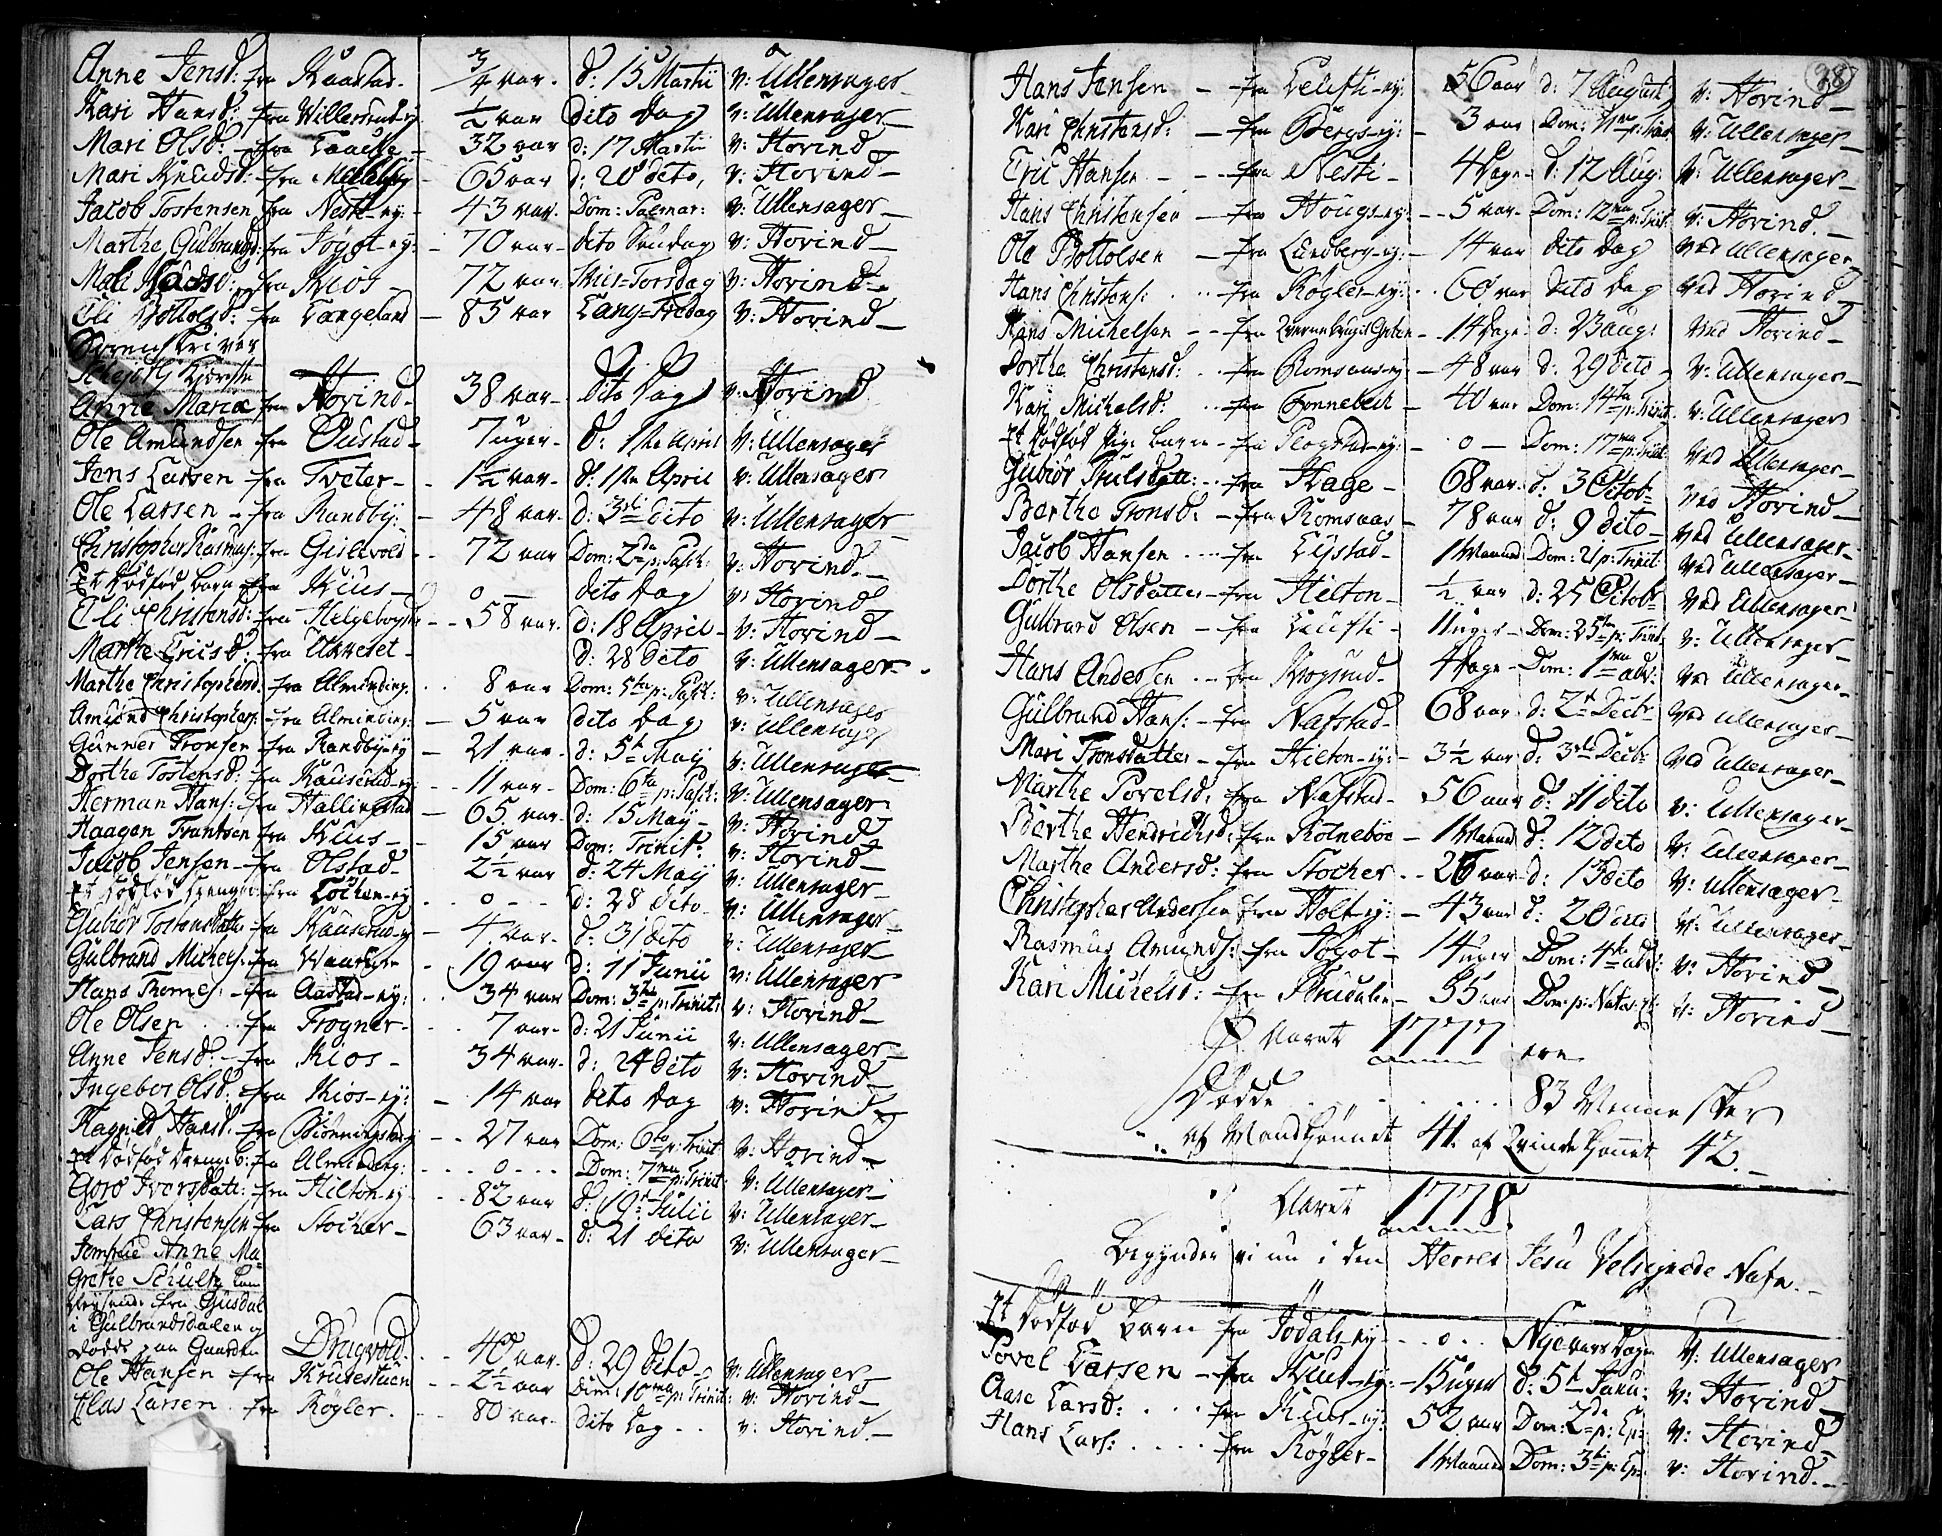 Anne Jensd: fra Kaastad - 3/4 aar - d: 15 Martii v: Ullensager -
Kari Hansd: fra - 1/2 aar dito Dag v: Ullensager -
Mari Olsd: - fra - 32 aar d: 17 Martii v: Hovind -
Mari Knudsd: fra - 65 aar d: 20 dito, v: Hovind -
Jacob Tostensen fra Nesti-ey: - 43 aar. Dom: Palmar: v: Ullensager -
Marthe Gulbrandsd: fra Jogot-ey: - 70 aar - dito Søndag v: Hovind -
fra Kios - 72 aar. Skier-Torsdag v: Hovind -
Eli Bottolsd: fra Langeland - 85 aar Lang-Fredag v: Hovind -
Sorenskriver
Anne Maria fra Hovind - 38 aar - dito Dag v: Hovind
Ole Amundsen fra - 7 uger - d: 1ste April v: Ullensager
Jens Larsen - fra Tveter - - 1 1/2 aar. d: 1ste April v: Ullensager
Ole Larsen - fra Randby: - 48 aar. d: 3die dito v: Ullensager -
Christopher Rasmus: fra Gislevold - - 72 aar Dom: 2da p: Pasch: v: Hovind. -
Et dødfød barn fra Kius - 0 - dito Dag v: Hovind
Eli Christensd: fra - - 58 aar. d: 18 April - v: Hovind -
Marthe Ericsd: fra - d: 28 dito v: Ullensager - .
Marthe Christophersd: fra Alminding. . . 8 aar Dom: 5ta p: Pasch: v: Ullensager
Amund Christophers: - fra Alminding: - 5 aar dito Dag v: Ullensager
Gunner Tronsen fra Randby-ey - 21 aar - d: 5te Maij v: Ullensager -
Dorthe Tostensd: fra Kauserud-ey: - 11 aar - Dom: 6ta p: Pasch: v: Ullensager
Herman Hans: fra Hallingstad - 65 aar - d: 15 Maij - v: Hovind
Haagen Frantsen fra Kius - - 15 aar Dom: Trinit: v: Hovind -
Jacob Jensen - fra Olstad - 2 1/2 aar d: 24 Maij v: Ullensager
Et dødfød fra - o - - - d: 28 dito - v: Ullensager -
Gubiør Tostensdatter fra Kauserud-ey - 4 aar - d: 31 dito v: Ullensager -
Gulbrand Michels: fra - 19 aar d: 11 Junii v: Ullensager
Hans Thomes: - fra Aastad-ey: . . 34 aar Dom: 3tia p: Trinit: v: Hovind -
Ole Olsen . . . fra Frogner - . . 7 aar - d: 21 Junii v: Ullensager -
Anne Jensd: - fra Kios - 34 aar - d: 24 dito v: Hovind -
Ingebor Olsd: fra Kios-ey: - 14 aar dito Dag v: Hovind
Ragnild Hansd: fra - - 27 aar Dom: 6ta p: Trinit v: Hovind -
Et Dødfød fra Alminding: - - - o - - - Dom: 7ma p: Trinit v: Ullensager -
Goro Iversdatt: fra Hilton-ey - - 82 aar d: 19de Julii v: Ullensager -
Lars Christensen fra Stocker - 63 aar - d: 21 dito v: Ullensager -
Jomfrue Anne Ma-
Grethe Schultz kom
fra Gusdal
i Gulbrandsdalen og
døde paa Gaarden Dragvold . . 40 aar - d: 29 dito - v: Ullensager -
Ole Hansen fra - - 2 1/2 aar Dom: 10ma p: Trinit: v: Hovind -
Elias Larsen . fra Røgler . - - 80 aar - dito Dag - - v: Hovind. -
28
Hans Jensen - fra - 56 aar d: 7 August v: Hovind -
Kari Christensd: - fra Bergs-ey: - 3 aar Dom: 11ma p: Trinit v: Ullensager -
Eric Hansen - - fra Nesti - 4 Dage - d: 12 Aug: v: Ullensager -
Hans Christensen - fra Hougs-ey: - - 5 aar - Dom: 12ma p: Trinit: v: Hovind. -
Ole Bottolsen - fra Lundberg-ey: - 14 aar dito Dag ved Ullensager
Hans Christens: . . fra Røgler-ey: . . 60 aar dito Dag ved Hovind
Hans Michelsen - - fra - 14 Dage d: 23 Aug: ved Hovind -
Dorthe Christensd: . . fra Romsaas-ey: - 48 aar d: 29 dito - v: Ullensager -
Kari Michelsd: . . fra - 40 aar Dom: 14ta p: Trinit. v: Ullensager
Et Dødfød Pige barn - fra - o - Dom: 17ma p: Trinit ved Ullensager -
Gubiør fra Hage - 68 aar d: 3 Octob: ved Hovind -
Berthe Tronsd: - fra Romsaas - 78 aar d: 9 dito - ved Ullensager -
Jacob Hansen . . . fra - 1 Maaned Dom: 21 p: Trinit ved Ullensager -
Dorthe Olsdatter - fra Hilton - 1/2 aar d: 25 Octob: ved Ullensager -
Gulbrand Olsen - fra - 11 uger - Dom: 25ta p: Trinit v: Ullensager -
Hans Andersen . . - fra - 4 Dage - Dom: 1ma adv: ved Ullensager -
Gulbrand Hans: - fra Nafstad - 68 aar - d: 2de Decbr ved Ullensager -
Mari Tronsdatter - fra Hilton-ey: - 3 1/2 aar d: 3die Decbr ved Ullensager -
Marthe Povelsd: fra Nafstad - 56 aar d: 11 dito v: Ullensager -
Berthe Hendrichsd: fra - 1 Maaned d: 12 dito v: Ullensager -
Marthe Andersd: fra Stocker . . 26 aar d: 13 dito v: Ullensager -
Christopher Andersen fra Holt-ey: - 43 aar d: 20 dito v: Ullensager -
Rasmus Amunds: fra Jogot - 14 uger Dom: 4ta adv: v: Hovind -
Kari Michelsd: fra - 55 aar Dom: p: v: Hovind -
I Aaret 1777 ere
Dødde . . . . . . 83 Mennesker
af Mandkønnet 41. af Qvindekønnet 42. -
Aaret 1778
Begynder vi nu i den Herres Jesu Velsignede Nafn. -
Et Dødfød Barn fra Jødals-ey - - o - - Nye-aars Dag v: Ullensager
Povel Larsen - fra Kius-ey: - 15 uger d: 5te Janu: v: Hovind -
Aase Larsd: . . . fra Kius-ey: 52 aar Dom: 2da p: Ep: v: Hovind -
Hans Lars: . . . . fra Røgler - 1 Maaned Dom: 3tia p: Ep: v: Hovind. -